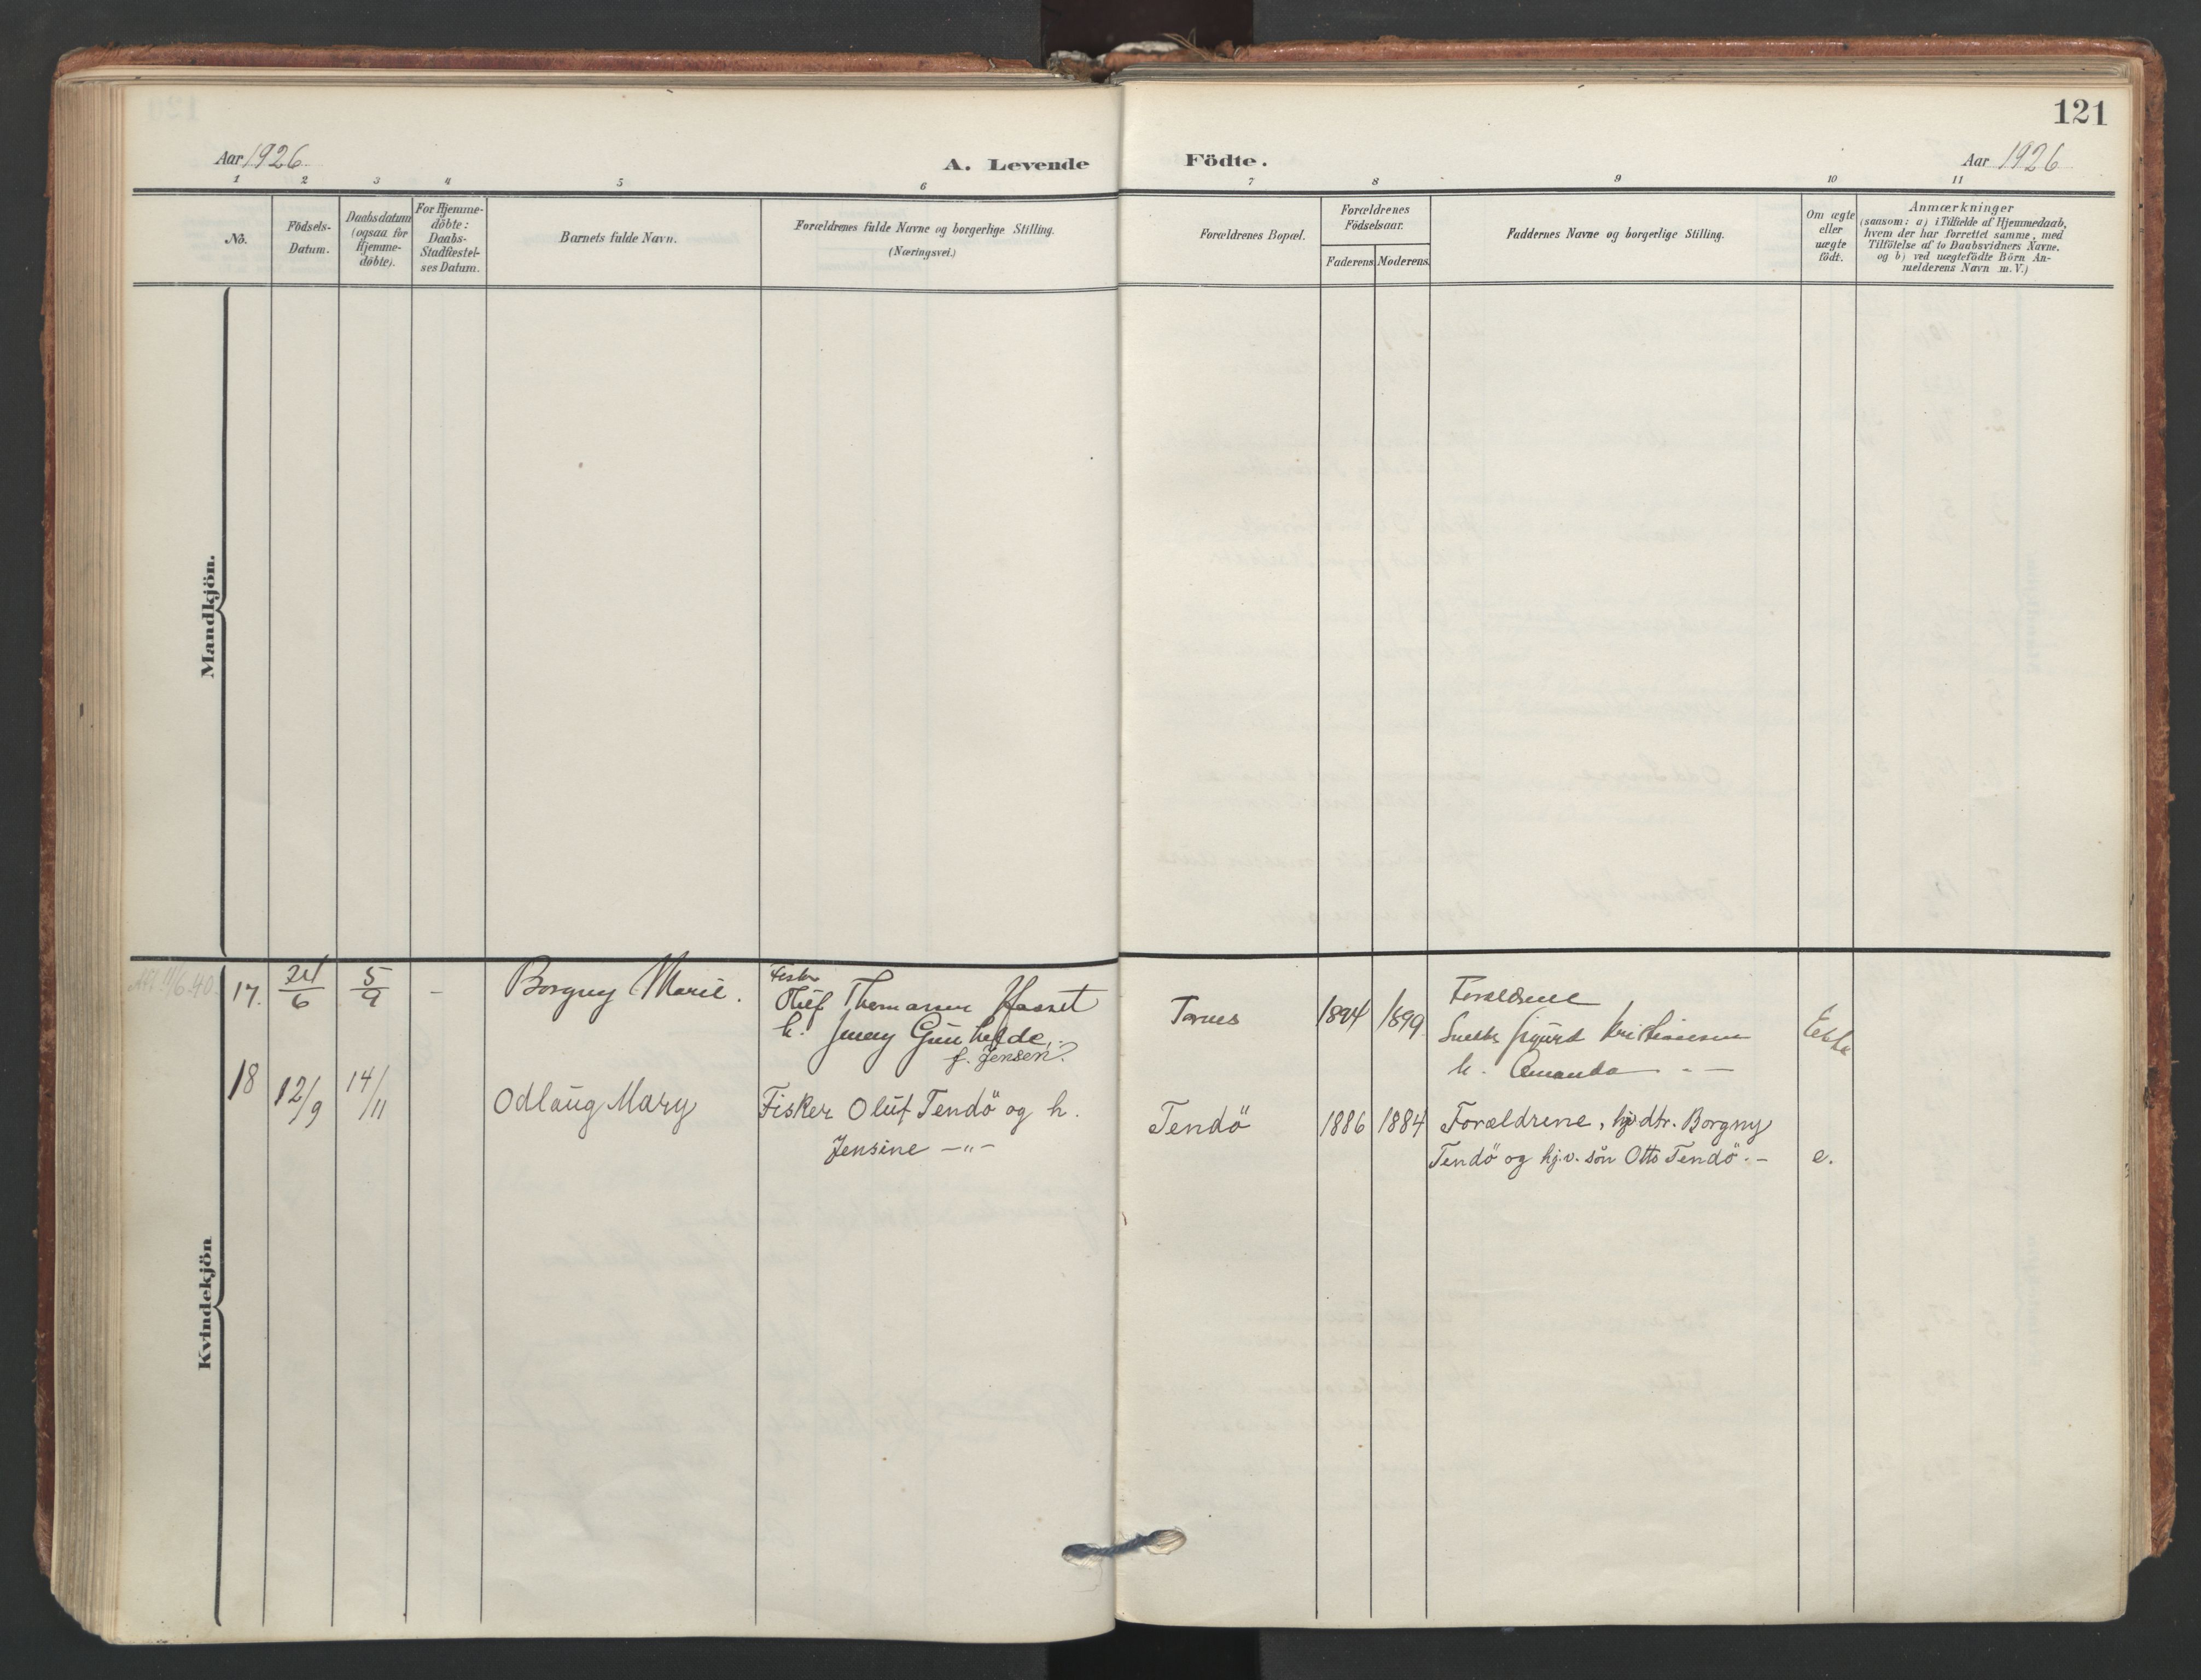 121
Aar 1926
A. Levende Födte.
Aar 1926
1 2 3 4 5 6 7 8 9 10 11
No.
Födsels-
Datum.
Daabsdatum
(ogsaa for
Hjemme-
döbte).
For Hjemme-
döbte:
Daabs-
Stadfæstel-
ses Datum.
Barnets fulde Navn.
Forældrenes fulde Navne og borgerlige Stilling.
(Næringsvei.)
Forældrenes Bopæl.
Forældrenes
Födselsaar.
Faderens. Moderens.
Faddernes Navne og borgerlige Stilling.
Om ægte
eller
uægte
födt.
Anmærkninger
(saasom: a) i Tilfælde af Hjemmedaab,
hvem der har forrettet samme, med
Tilföielse af to Daabsvidners Navne,
og b) ved uægtefödte Börn An-
melderens Navn m.V.)
Mandkjön.
Kvindekjön
17. 24/6 5/9 - Borgny Marie.
Fisker
Oluf Thomassen Hasset
h. Jenny Gunhilde,
f. Jensen.
Tornes 1894 1899
Forældrene
Snekker Sigurd Kristiansen
h. Amanda - -
Ekte
18 12/9 14/11 Odlaug Mary
Fisker Oluf Tendö og h.
Jensine -"-
Tendö 1886 1884
Forældrene, hjv. dtr. Borgny
Tendö og hj.v. sön Otto Tendö.-
e.